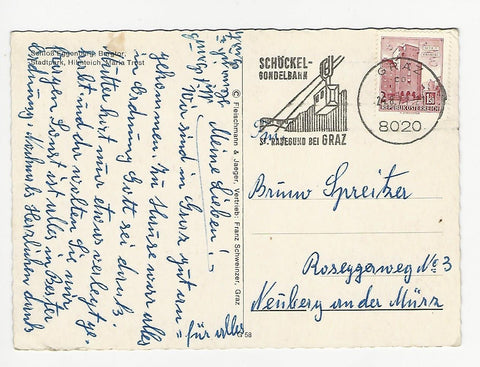 Schloß Eggenberg, Burgtor,
Stadtpark, Hilmteich, Maria Trost
Meine Lieben! –
Wir sind in Graz gut an-
gekommen. Zu Hause war alles
in Ordnung Gott sei dank.
Mutter hat nur etwas
und da wollten Sie nur
sonst ist alles in Bester
Ordnung. Nochmals Herzlichen dank
für alles
© Fleischmann & Jaeger, Vertrieb: Franz Schweinzer, Graz
58
SCHÖCKEL-
GONDELBAHN
ST. RADEGUND BEI GRAZ
GRAZ
8020
REPUBLIK ÖSTERREICH
Bruno Spreitzer
Roseggerweg No 3
Neuberg an der Mürz